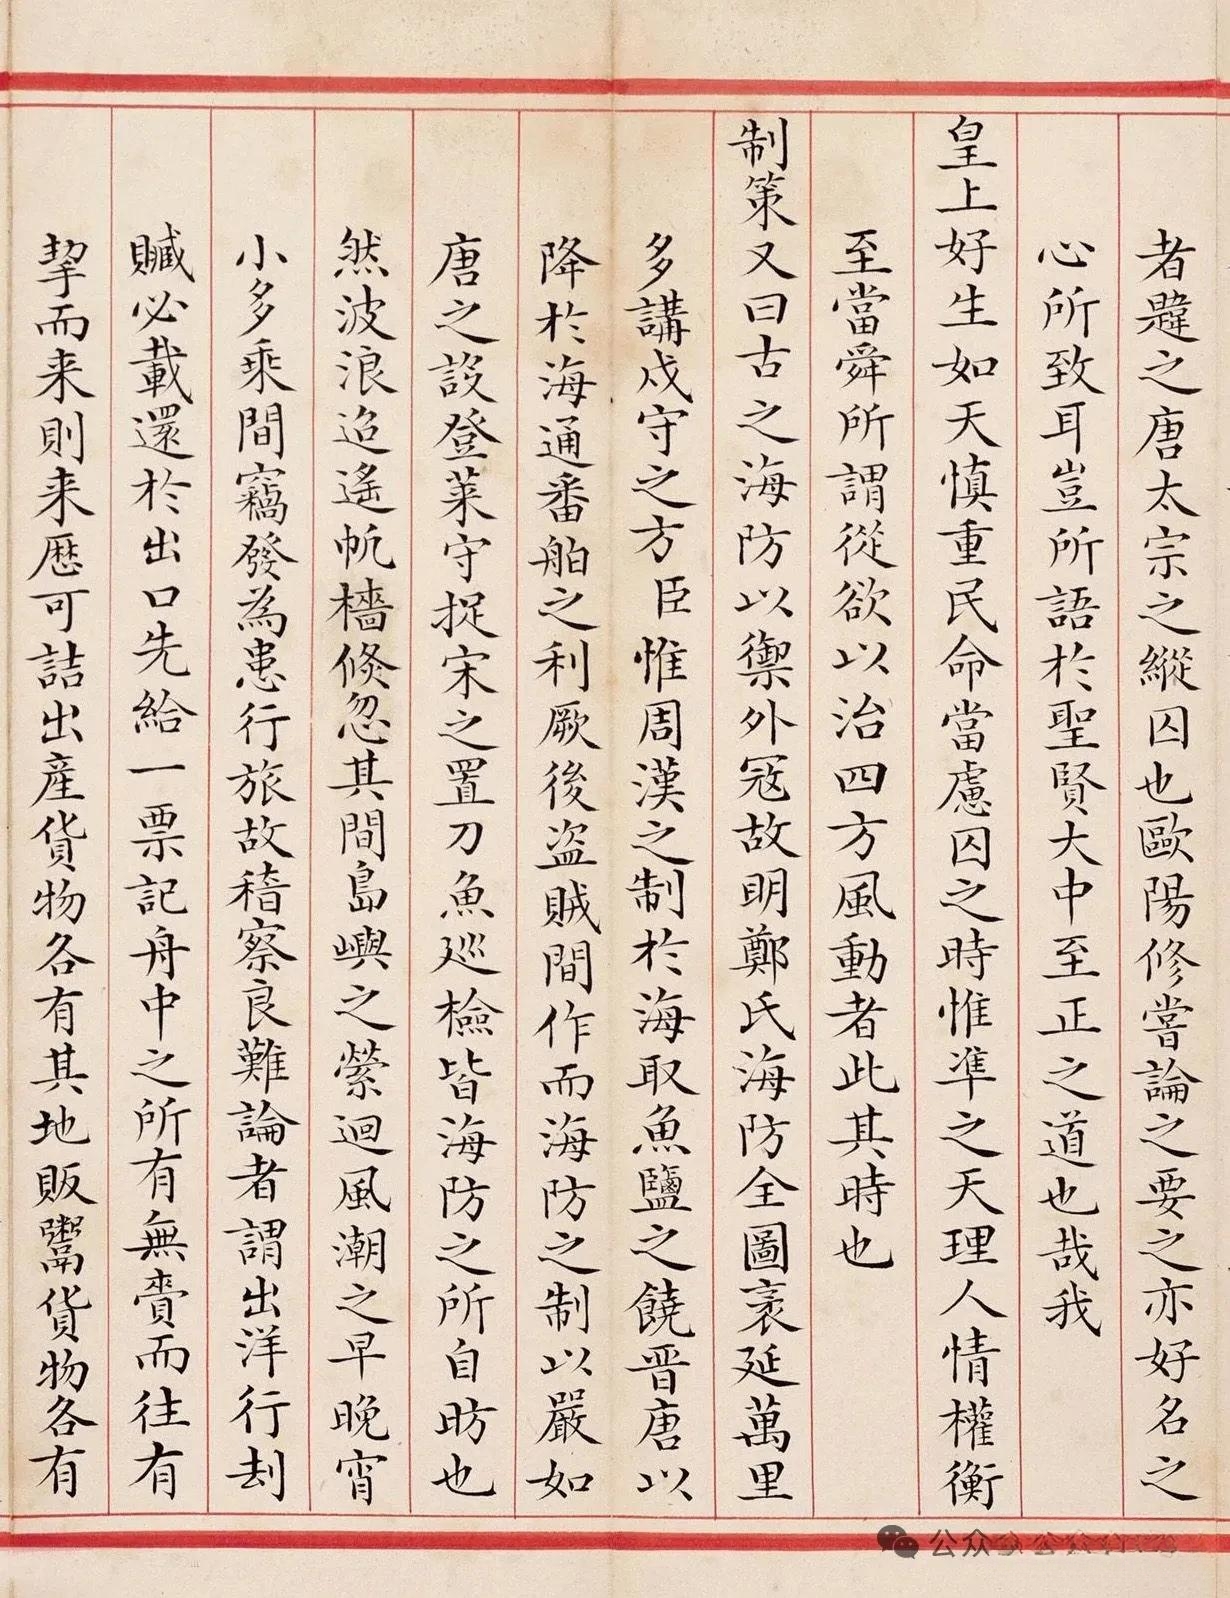 者韙之唐太宗之縱囚也歐陽修嘗論之要之亦好名之
心所致耳豈所語於聖賢大中至正之道也哉我
皇上好生如天慎重民命當慮囚之時惟準之天理人情權衡
至當舜所謂從欲以治四方風動者此其時也
制策又曰古之海防以禦外冦故明鄭氏海防全圖袤延萬里
多講戍守之方臣惟周漢之制於海取魚鹽之饒晋唐以
降於海通番舶之利厥後盗賊間作而海防之制以嚴如
唐之設登萊守捉宋之置刀魚巡檢皆海防之所自昉也
然波浪迢遙帆檣倏忽其間島嶼之縈迴風潮之早晚宵
小多乘間竊發為患行旅故稽察良難論者謂出洋行刦
贓必載還於出口先給一票記舟中之所有無賫而往有
挈而来則来歴可詰出産貨物各有其地販鬻貨物各有
公众